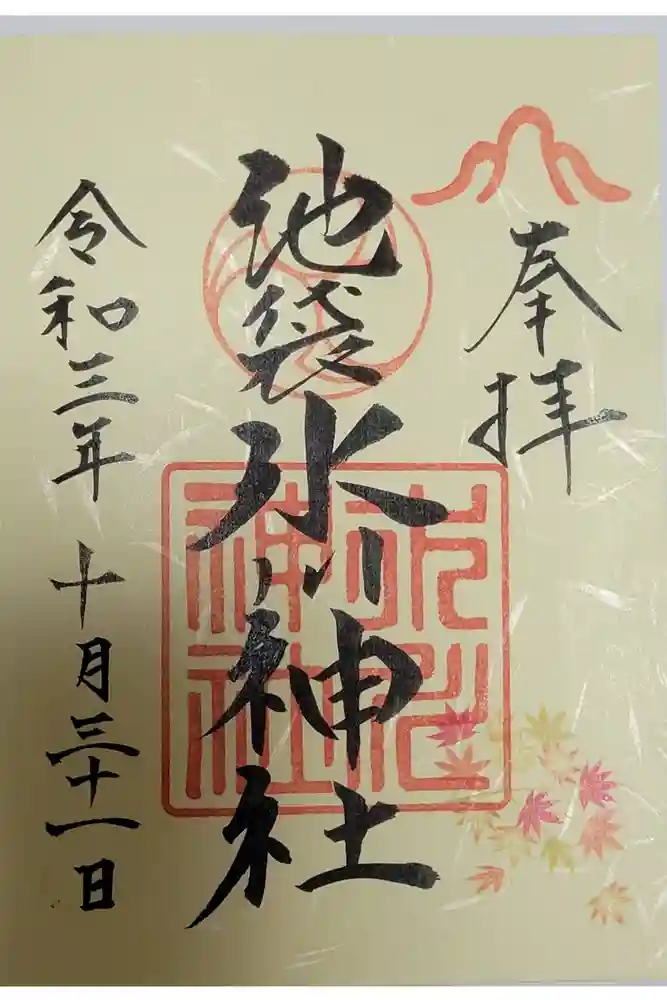 奉拝
池袋氷川神社
令和三年 十月三十一日